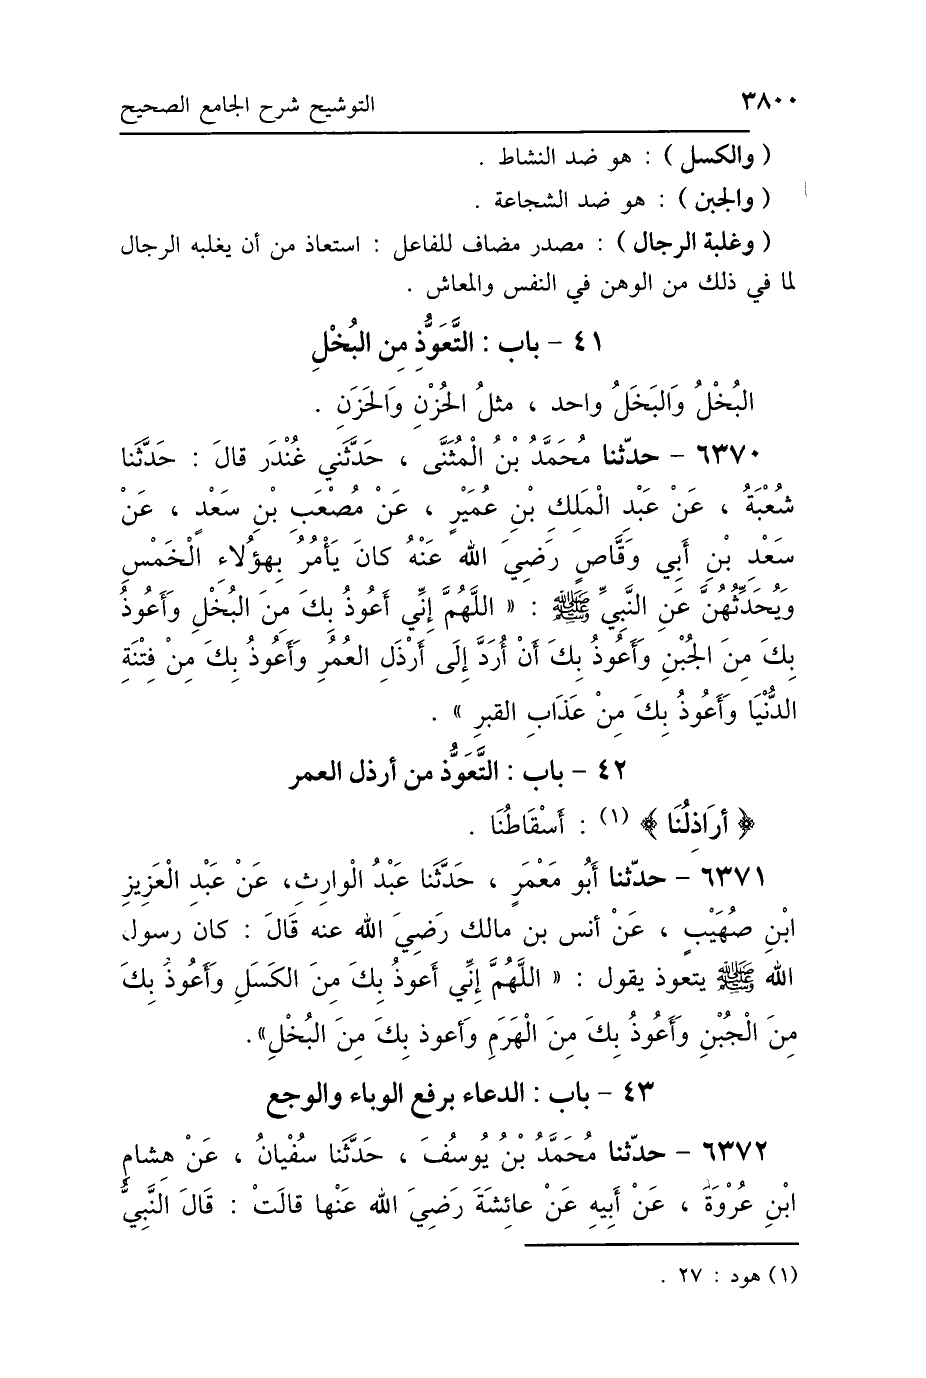 ٣٨٠٠ التوشيح شرح الجامع الصحيح
( والكسل ) : هو ضد النشاط .
( والجبن ) : هو ضد الشجاعة .
( وغلبة الرجال ) : مصدر مضاف للفاعل : استعاذ من أن يغلبه الرجال
لما في ذلك من الوهن في النفس والمعاش .
٤١ - باب : التَّعَوُّذِ مِن البُخْلِ
البُخْلُ وَالبَخَلُ واحد ، مثلُ الحُزْنِ وَالحَزَنِ .
٦٣٧٠ - حدّثنا مُحَمَّدُ بْنُ الْمُثَنَّى ، حَدَّثَني غُنْدَر قالَ : حَدَّثَنا
شُعْبَةُ ، عَنْ عَبْدِ الْمَلِكِ بْنِ عُمَيْرٍ ، عَنْ مُصْعَبِ بْنِ سَعْدٍ ، عَنْ
سَعْدِ بْنِ أَبي وَقَّاصٍ رَضِيَ الله عَنْهُ كانَ يَأْمُرُ بِهؤُلاء الْخَمْسِ
وَيُحَدِّثُهُنَّ عَنِ النَّبِيِّ ﷺ : « اللَّهُمَّ إِنِّي أَعُوذُ بِكَ مِنَ البُخْلِ وَأَعُوذُ
بِكَ مِنَ الجُبْنِ وَأَعُوذُ بِكَ أَنْ أُرَدَّ إِلَى أَرْذَلِ العُمُرِ وَأَعُوذُ بِكَ مِنْ فِتْنَةِ
الدُّنْيَا وَأَعُوذُ بِكَ مِنْ عَذَابِ القبرِ » .
٤٢ - باب : التَّعَوُّذ من أرذل العمر
﴿ أرَاذِلُنَا ﴾ (١) : أَسْقَاطُنَا .
٦٣٧١ - حدّثنا أَبُو مَعْمَرٍ ، حَدَّثَنا عَبْدُ الْوارِثِ، عَنْ عَبدِ الْعَزِيزِ
ابْنِ صُهَيْبٍ ، عَنْ أنس بن مالك رَضِيَ الله عنه قَالَ : كان رسول
الله ﷺ يتعوذ يقول : « اللَّهُمَّ إِنِّي أعوذُ بِكَ مِنَ الكَسَلِ وَأَعُوذُ بِكَ
مِنَ الْجُبْنِ وَأَعُوذُ بِكَ مِنَ الْهَرَمِ وَأعوذ بِكَ مِنَ البُخْلِ».
٤٣ - باب : الدعاء برفع الوباء والوجع
٦٣٧٢ - حدّثنا مُحَمَّدُ بْنُ يُوسُفَ ، حَدَّثَنا سفْيانُ ، عَنْ هِشامِ
ابْنِ عُرْوَةَ ، عَنْ أَبِيهِ عَنْ عائِشَةَ رَضِيَ الله عَنْها قالَتْ : قَالَ النَّبِيُّ
(١) هود : ٢٧ .